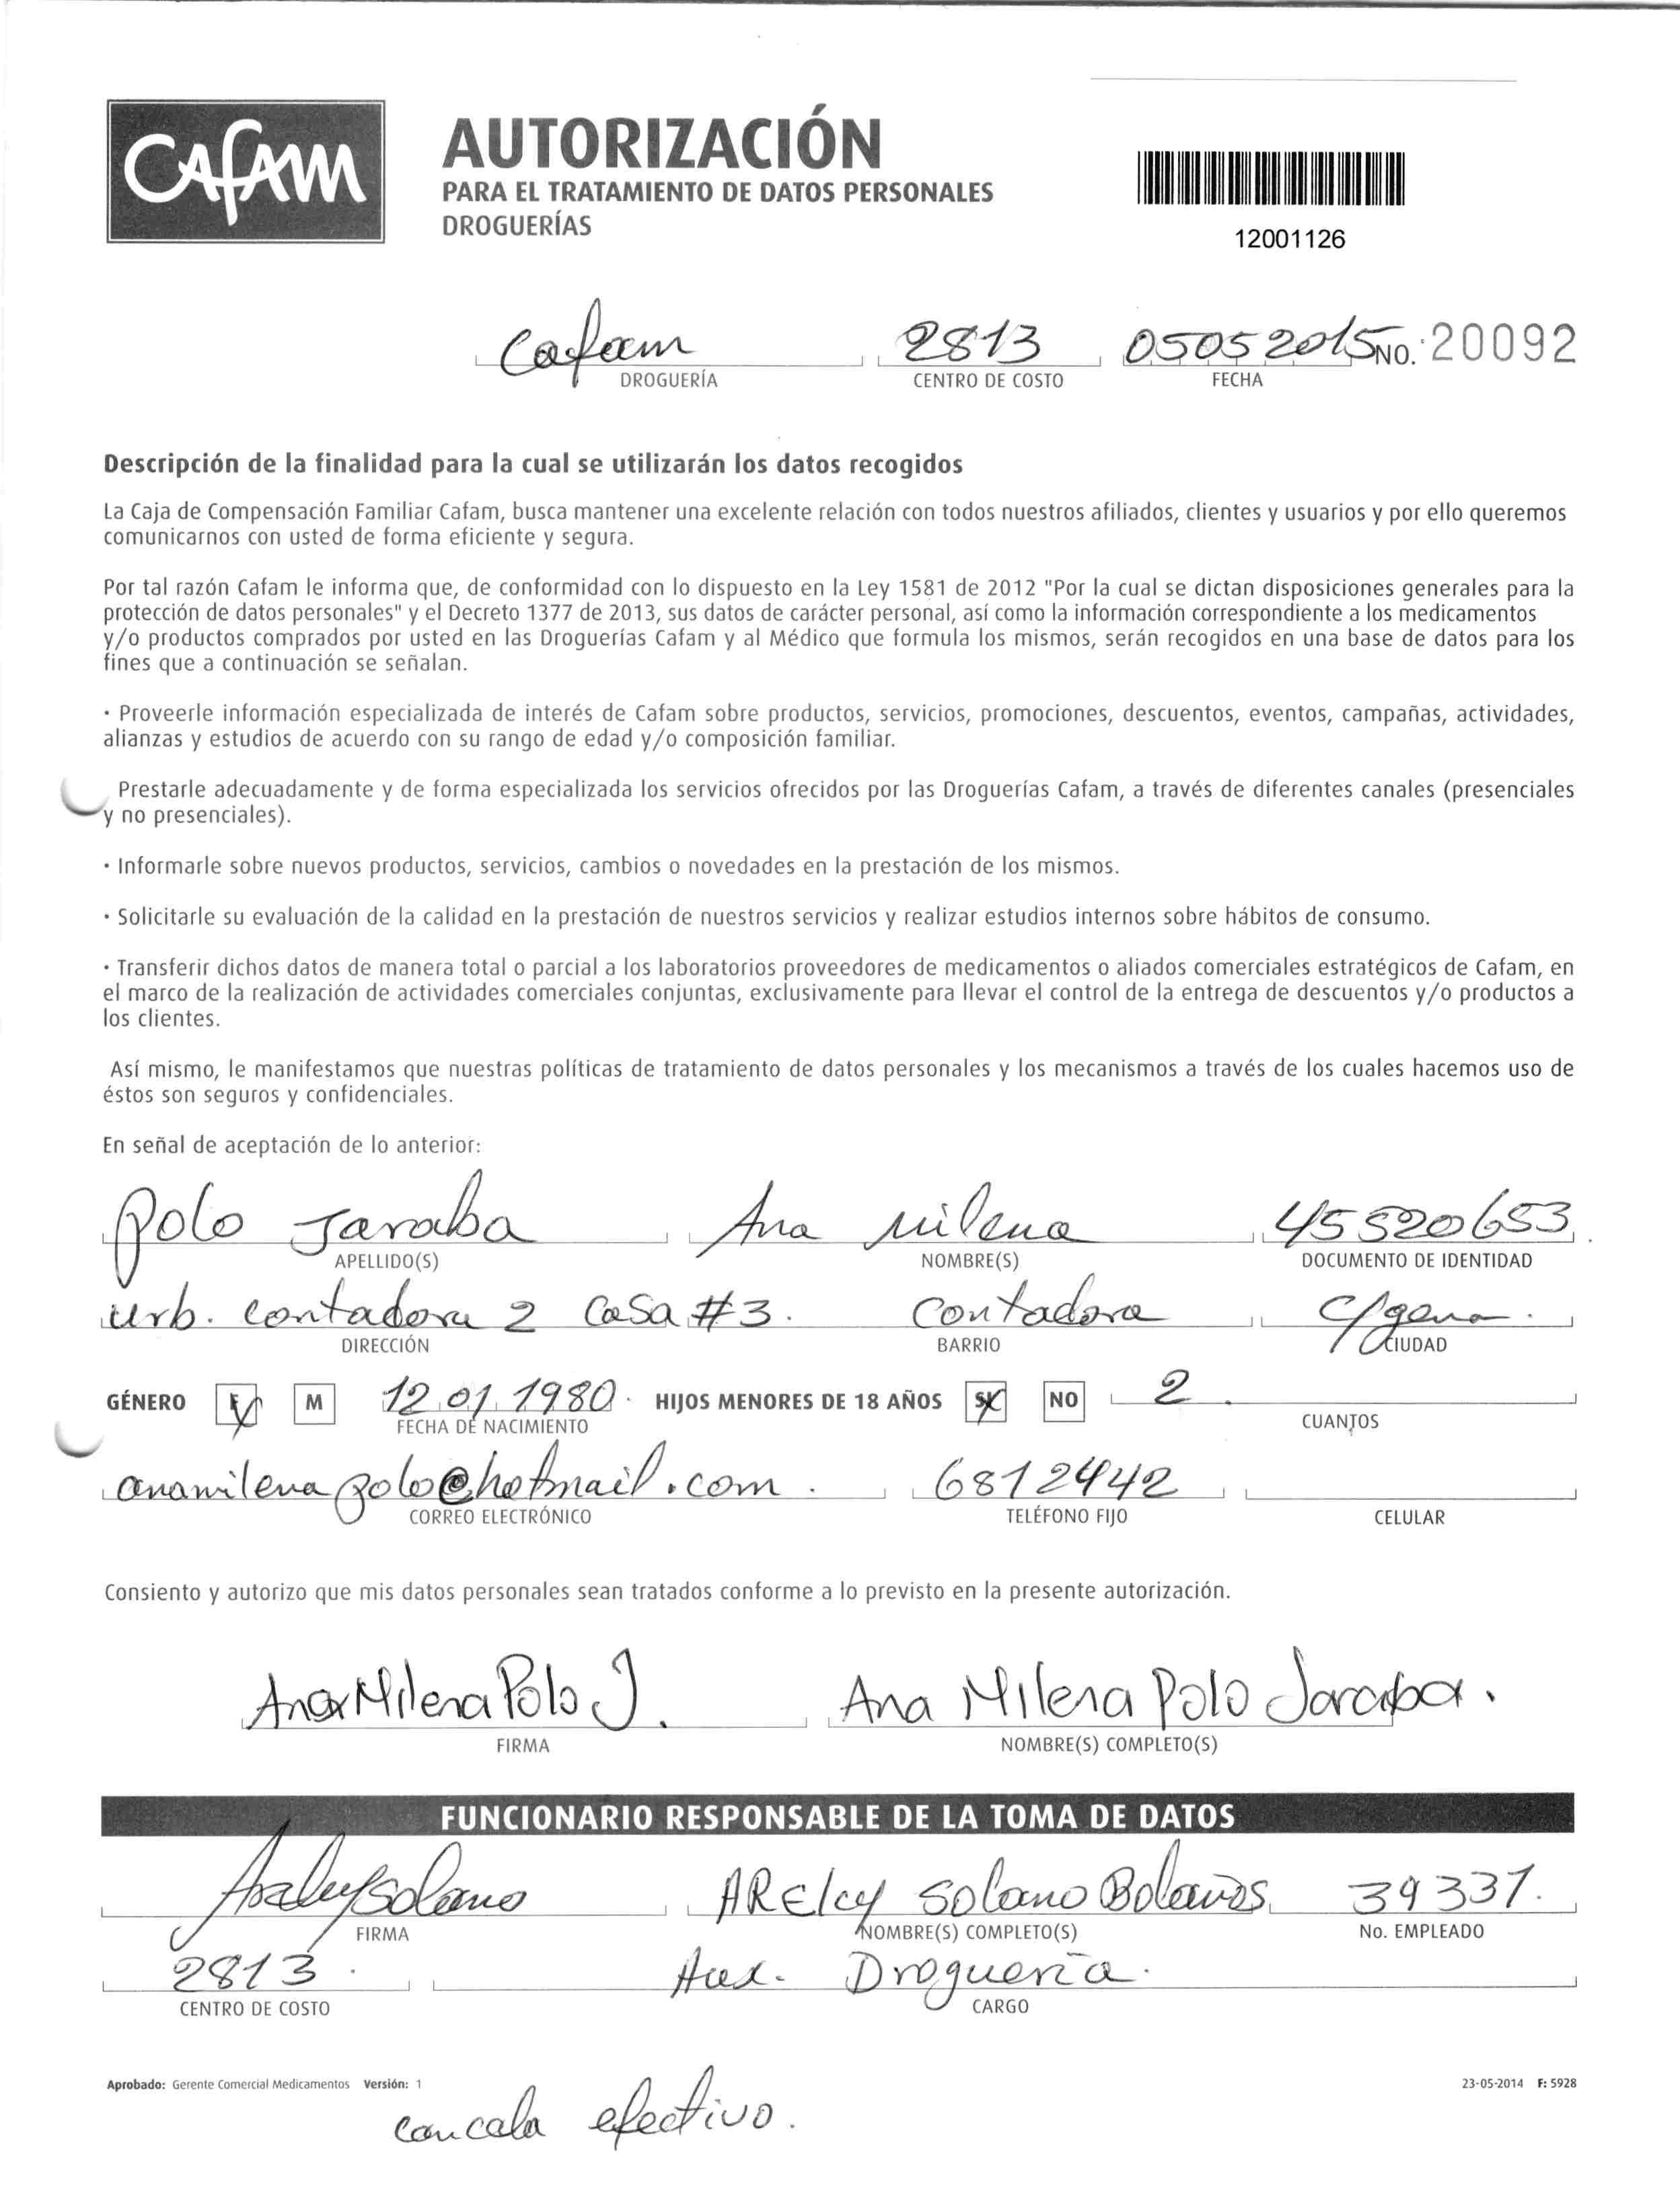 CAFAM
AUTORIZACIÓN
PARA EL TRATAMIENTO DE DATOS PERSONALES
DROGUERÍAS
12001126
Cafam 2813 05052015 No. 20092
DROGUERÍA CENTRO DE COSTO FECHA
Descripción de la finalidad para la cual se utilizarán los datos recogidos
La Caja de Compensación Familiar Cafam, busca mantener una excelente relación con todos nuestros afiliados, clientes y usuarios y por ello queremos
comunicarnos con usted de forma eficiente y segura.
Por tal razón Cafam le informa que, de conformidad con lo dispuesto en la Ley 1581 de 2012 "Por la cual se dictan disposiciones generales para la
protección de datos personales" y el Decreto 1377 de 2013, sus datos de carácter personal, así como la información correspondiente a los medicamentos
y/o productos comprados por usted en las Droguerías Cafam y al Médico que formula los mismos, serán recogidos en una base de datos para los
fines que a continuación se señalan.
· Proveerle información especializada de interés de Cafam sobre productos, servicios, promociones, descuentos, eventos, campañas, actividades,
alianzas y estudios de acuerdo con su rango de edad y/o composición familiar.
Prestarle adecuadamente y de forma especializada los servicios ofrecidos por las Droguerías Cafam, a través de diferentes canales (presenciales
y no presenciales).
· Informarle sobre nuevos productos, servicios, cambios o novedades en la prestación de los mismos.
· Solicitarle su evaluación de la calidad en la prestación de nuestros servicios y realizar estudios internos sobre hábitos de consumo.
· Transferir dichos datos de manera total o parcial a los laboratorios proveedores de medicamentos o aliados comerciales estratégicos de Cafam, en
el marco de la realización de actividades comerciales conjuntas, exclusivamente para llevar el control de la entrega de descuentos y/o productos a
los clientes.
Así mismo, le manifestamos que nuestras políticas de tratamiento de datos personales y los mecanismos a través de los cuales hacemos uso de
éstos son seguros y confidenciales.
En señal de aceptación de lo anterior:
Polo Jaraba Ana milena 45520653
APELLIDO(S) NOMBRE(S) DOCUMENTO DE IDENTIDAD
urb. contadora 2 casa #3. Contadora C/gena.
DIRECCIÓN BARRIO CIUDAD
GÉNERO F M 12 01 1980. HIJOS MENORES DE 18 AÑOS SI NO 2.
FECHA DE NACIMIENTO CUANTOS
anamilenapolo@hotmail.com. 6812442
CORREO ELECTRÓNICO TELÉFONO FIJO CELULAR
Consiento y autorizo que mis datos personales sean tratados conforme a lo previsto en la presente autorización.
Ana Milena Polo J. Ana Milena Polo Jaraba.
FIRMA NOMBRE(S) COMPLETO(S)
FUNCIONARIO RESPONSABLE DE LA TOMA DE DATOS
Arelcy Solano ARElcy Solano Bolaños 39331.
FIRMA NOMBRE(S) COMPLETO(S) No. EMPLEADO
2813. Aux. Droguería.
CENTRO DE COSTO CARGO
Aprobado: Gerente Comercial Medicamentos Versión: 1 23-05-2014 F: 5928
cancela efectivo.